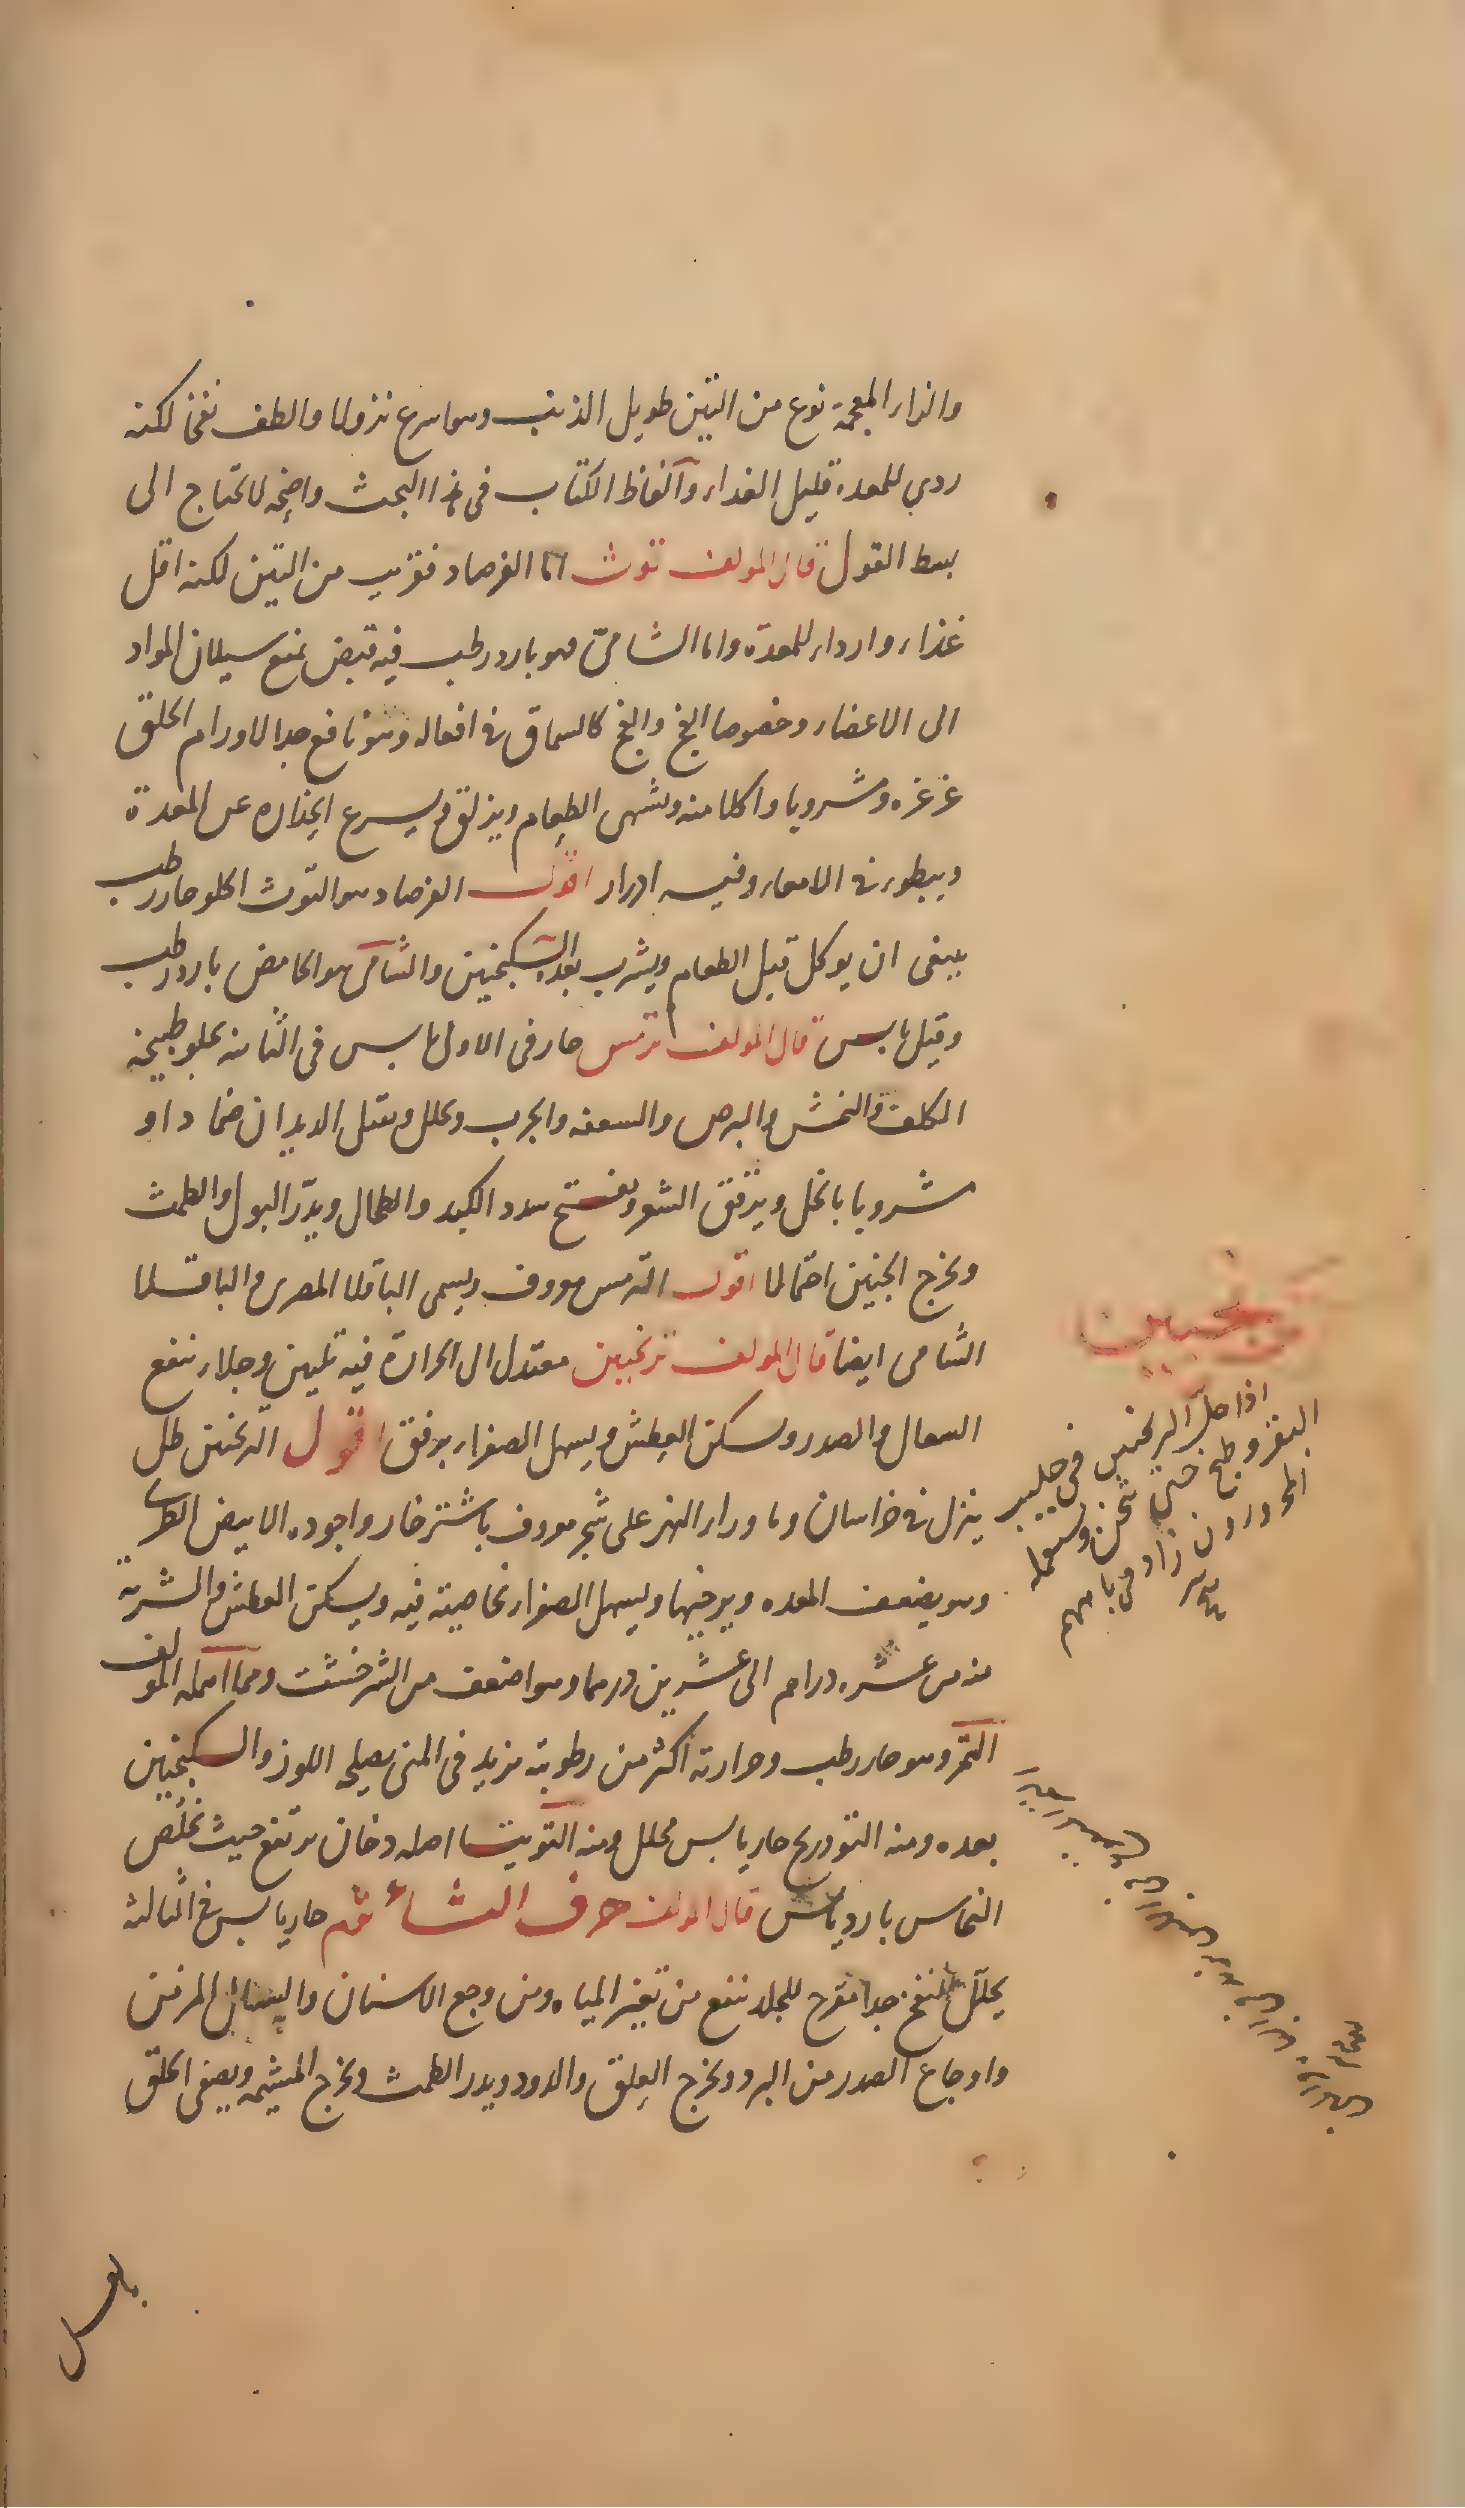 والزاء المعجمة نوع من التين طويل الذنب وهو اسرع نزولا والطف نفخا لكنه
ردي للمعده قليل الغداء وآلفاظ الكتاب في هذا البحث واضحه لا تحتاج الى
بسط القول قال المولف توث اما الفرصاد فقريب من التين لكنه اقل
غذاء واردا للمعدة واما الشامي فهو بارد رطب فيه قبض يمنع سيلان المواد
الى الاعضاء وخصوصا الفج والفج كالسماق في افعاله وهو نافع جدا لاورام الحلق
غرغره ومشروبا واكلا منه ويشهى الطعام ويزلق ويسرع انحداره عن المعدة
ويبطوء في الامعاء وفيه ادرار اقول الفرصاد هو التوث الحلو حار رطب
ينبغى ان يوكل قبل الطعام ويشرب بعده السكنجبين والشامى هو الحامض بارد رطب
وقيل يابس قال المولف ترمس حار في الاولى يابس في الثانية يجلو طبيخه
الكلف والنمش والبرص والسعفه والجرب ويحلل ويقتل الديدان ضمادا او
مشروبا بالخل ويرقق الشعر ويفتح سدد الكبد والطحال ويدر البول والطمث
ويخرج الجنين احتمالا اقول الترمس معروف ويسمى الباقلا المصرى والباقلا
الشامى ايضا قال المولف ترنجبين معتدل الى الحرارة فيه تليين وجلاء ينفع
السعال والصدر ويسكن العطش ويسهل الصفراء برفق اقول الترنجبين طل
ينزل في خراسان وما وراء النهر على شجر معروف باشترخار واجوده الابيض الطرى
وهو يضعف المعده ويرخيها ويسهل الصفراء بخاصية فيه ويسكن العطش والشربة
منه من عشره دراهم الى عشرين درهما وهو اضعف من الشرخشت ومما اهمله المولف
التمر وهو حار رطب وحرارته اكثر من رطوبته يزيد في المنى يصلحه اللوز والسكنجبين
بعده ومنه التودرى حار يابس محلل ومنه التوتيا اصله دخان يرتفع حيث يخلص
النحاس بارد يابس قال المولف حرف الثاء ثوم حار يابس في الثالثه
يحلل النفخ جدا مقرح للجلد ينفع من تغير المياه ومن وجع الاسنان والسعال المزمن
واوجاع الصدر من البرد ويخرج العلق والدود ويدر الطمث ويخرج المشيمه ويصفى الحلق
ترنجبين
اذا حل الترنجبين في حليب
البقر وطبخ حتى ثخن واستعمله
المحرورون زاد في باههم
بالعسل